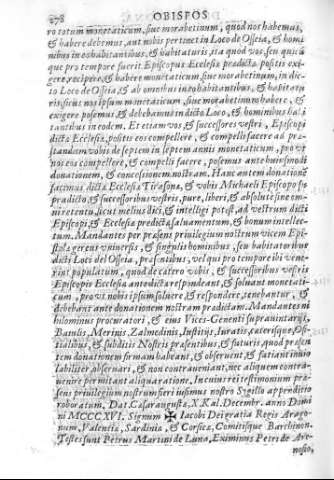 278 OBISPOS
ro totum monetaticum, siue morabetinum, quod nos habemus,
& habere debemus, aut nobis pertinet in Loco de Osseia, & homi
nibus in eo habitantibus, & habitaturis, ita quod vos, seu quicũ
que pro tempore fuerit Episcopus Ecclesiæ prædictæ possitis exi
gere, recipere, & habere monetaticum, siue morabetinum, in dic-
to Loco de Osseia, & ab omnibus in eo habitantibus, & habitatu
ris, sicut nos ipsum monetaticum, siue morabetinum habere, &
exigere possemus, & debebamus in dicto Loco, & hominibus habi
tantibus in eodem. Et etiam vos, & successores vestri, Episcopi
dictæ Ecclesiæ, positis eos compellere, & compelli facere ad præ-
standum vobis de septem in septem annis monetaticum, pro vt
nos eos compellere, & compelli facere, possemus ante huiusmodi
donationem, & concessionem nostram. Hanc autem donationẽ
facimus dictæ Ecclesiæ Tirasonæ, & vobis Michaeli Episcopo su
prædicto, & successoribus vestris, pure, liberè, & absolute sine om-
ni retentu, sicut melius dici, & intelligi potest, ad vestrum dicti
Episcopi, & Ecclesiæ prædictæ, saluamentum, & bonum intellec-
tum, Mandantes per præsens priuilegium nostrum vicem Epi-
stolæ gerens vniuersis, & singulis hominibus, seu habitatoribus
dicti Loci del Osseia, præsentibus, vel qui pro tempore ibi vene-
rint populatum, quod de cætero vobis, & successoribus vestris
Episcopis Ecclesiæ antedictæ respondeant, & soluant monetati-
cum, pro vt nobis ipsum soluere, & respondere, tenebantur, &
debebant ante donationem nostram prædictam. Mandantes ni
hilominus procuratori, & eius Vices-Gerenti supra iuntarijs,
Baiulis, Merinis, Zalmedinis, Iustitijs, Iuratis, cæterisque, Of-
ficialibus, & subditis Nostris præsentibus, & futuris, quod præsen
tem donationem firmam habeant, & obseruent, & faciant inuio
labiliter, obseruari, & non contraueniant, nec aliquem contra-
uenire permitant aliqua ratione. In cuius rei testimonium præ-
sens priuilegium nostrum fieri iussimus nostro Sigillo appenditio
roboratum, Dat. Cæsaraugustæ, X. Kal. Decembr. anno Domi
ni MCCCXVI. Signum ✠ Iacobi Dei gratia Regis Arago
num, Valentiæ, Sardiniæ, & Corsicæ, Comitisque Barchinon.
Testes sunt Petrus Martini de Luna, Eximinus Petri de Are-
nosio,